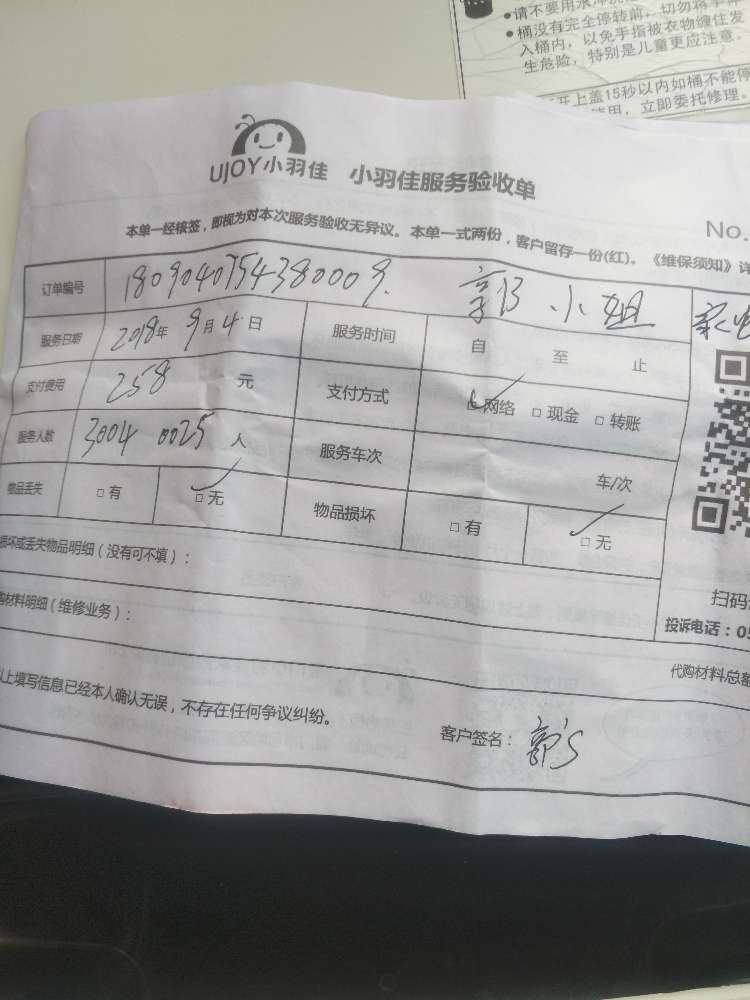 请不要用水冲洗
桶没有完全停转前，切勿将手伸
入桶内，以免手指被衣物缠住发
生危险，特别是儿童更应注意。
开上盖15秒以内如桶不能停
使用，立即委托修理。
UJOY小羽佳 小羽佳服务验收单
No.
本单一经核签，即视为对本次服务验收无异议。本单一式两份，客户留存一份(红)。《维保须知》详
订单编号 1809040754380009. 郭 小姐
服务日期 2018年 9月4日 服务时间 自 至 止
支付费用 258 元 支付方式 □网络 □现金 □转账
服务人数 3004 0025 人 服务车次 车/次
物品丢失 □有 □无 物品损坏 □有 □无
损坏或丢失物品明细（没有可不填）：
购材料明细（维修业务）：
扫码
投诉电话：05
代购材料总额
以上填写信息已经本人确认无误，不存在任何争议纠纷。
客户签名：郭's